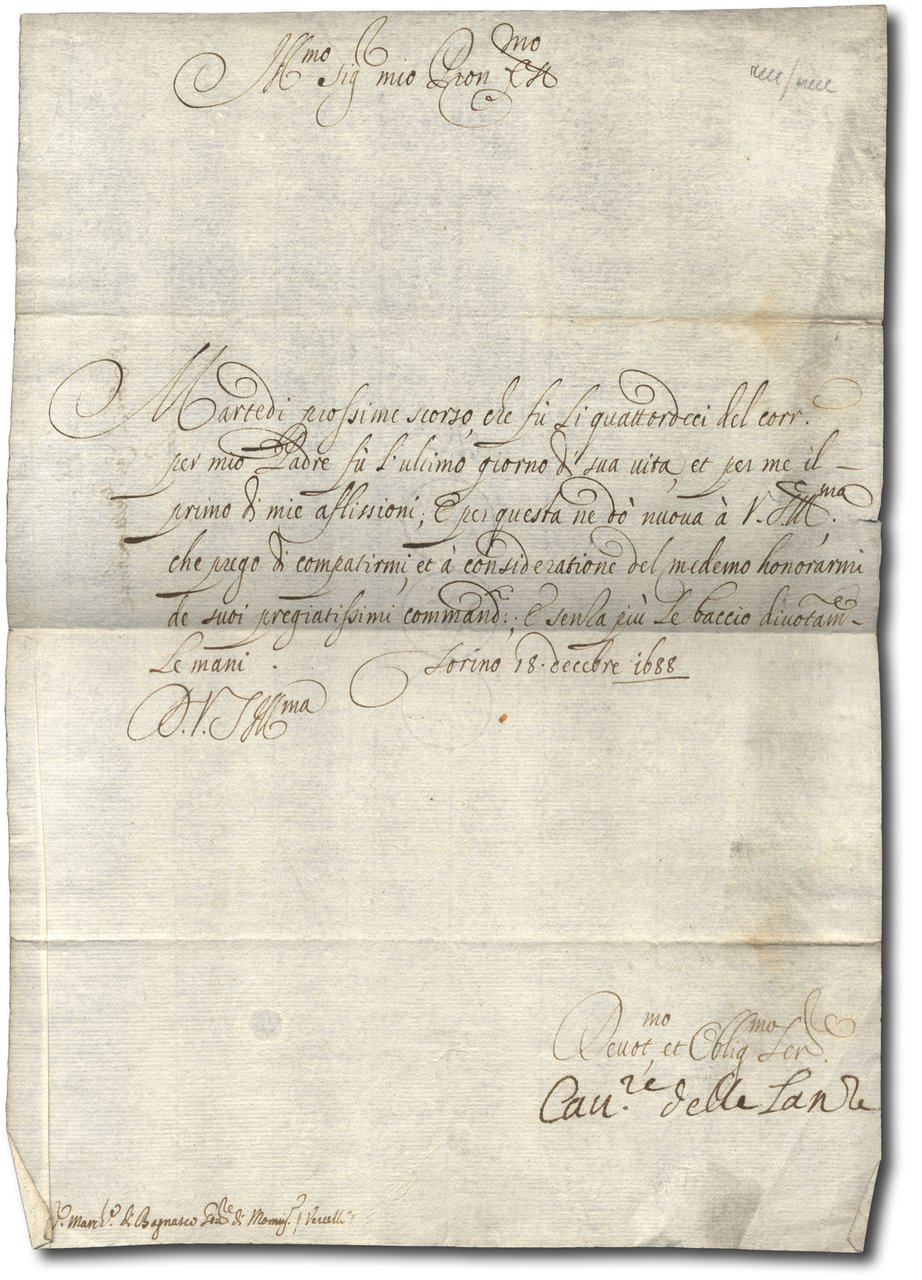 Ill.mo Sig.r mio Pron Col.mo
Martedi prossime scorso, che fù li quattordeci del corr.te
per mio Padre fù l'ultimo giorno di sua uita, et per me il
primo di mie afflissioni; E per questa ne dò nuova à V. S. Ill.ma
che prego di compatirmi, et à consideratione del medemo honorarmi
de suoi pregiatissimi command:; E senza più le baccio diuotam.
le mani. Torino 18. decẽbre 1688
D. V. S. Ill.ma
Deuot.mo et Oblig.mo Ser.
Cau.re delle Lanze
March. di Bagnasco Gou.re di Vercelli